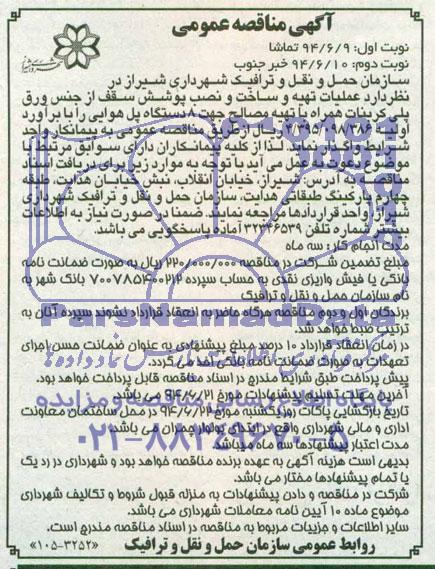 آگهی مناقصه عمومی
نوبت اول: ۹۴/۶/۹ تماشا
نوبت دوم: ۹۴/۶/۱۰ خبر جنوب
شهرداری شیراز
سازمان حمل و نقل و ترافیک شهرداری شیراز در
نظر دارد عملیات تهیه و ساخت و نصب پوشش سقف از جنس ورق
پلی کربنات همراه با تهیه مصالح جهت ۸ دستگاه پل هوایی را با برآورد
اولیه ریال از طریق مناقصه عمومی به پیمانکار واجد
شرایط واگذار نماید. لذا از کلیه پیمانکاران دارای سوابق مرتبط با
موضوع دعوت به عمل می آید با توجه به موارد زیر برای دریافت اسناد
مناقصه به آدرس: شیراز، خیابان انقلاب، نبش خیابان هدایت، طبقه
چهارم پارکینگ طبقاتی هدایت، سازمان حمل و نقل و ترافیک شهرداری
شیراز واحد قراردادها مراجعه نمایند. ضمنا در صورت نیاز به اطلاعات
بیشتر شماره تلفن ۳۲۳۴۶۵۳۹ آماده پاسخگویی می باشد.
مدت انجام کار: سه ماه
مبلغ تضمین شرکت در مناقصه ۲۲۰/۰۰۰/۰۰۰ ریال به صورت ضمانت نامه
بانکی یا فیش واریزی نقدی به حساب سپرده ۷۰۰۷۸۵۴۰۰۲۱۲ بانک شهر به
نام سازمان حمل و نقل و ترافیک
برندگان اول و دوم مناقصه هرگاه حاضر به انعقاد قرارداد نشوند سپرده آنان به
ترتیب ضبط خواهد شد.
ParsNamadData
در زمان انعقاد قرارداد ۱۰ درصد مبلغ پیشنهادی به عنوان ضمانت حسن اجرای
تعهدات به صورت ضمانت نامه بانکی اخذ می گردد.
پیش پرداخت طبق شرایط مندرج در اسناد مناقصه قابل پرداخت خواهد بود.
آخرین مهلت تسلیم پیشنهادات مورخ ۹۴/۶/۲۱ می باشد.
تاریخ بازگشایی پاکات روز یکشنبه مورخ ۹۴/۶/۲۲ در محل ساختمان معاونت
اداری و مالی شهرداری واقع در ابتدای بولوار چمران می باشد.
مدت اعتبار پیشنهادها سه ماه میباشد.
۰۲۱-۸۸۳۴۹۶۷۰-۵
بدیهی است هزینه آگهی به عهده برنده مناقصه خواهد بود و شهرداری در رد یک
یا تمام پیشنهادها مختار می باشد.
شرکت در مناقصه و دادن پیشنهادات به منزله قبول شروط و تکالیف شهرداری
موضوع ماده ۱۰ آیین نامه معاملات شهرداری می باشد.
سایر اطلاعات و جزییات مربوط به مناقصه در اسناد مناقصه مندرج است.
روابط عمومی سازمان حمل و نقل و ترافیک «۱۰۵-۳۲۵۲»